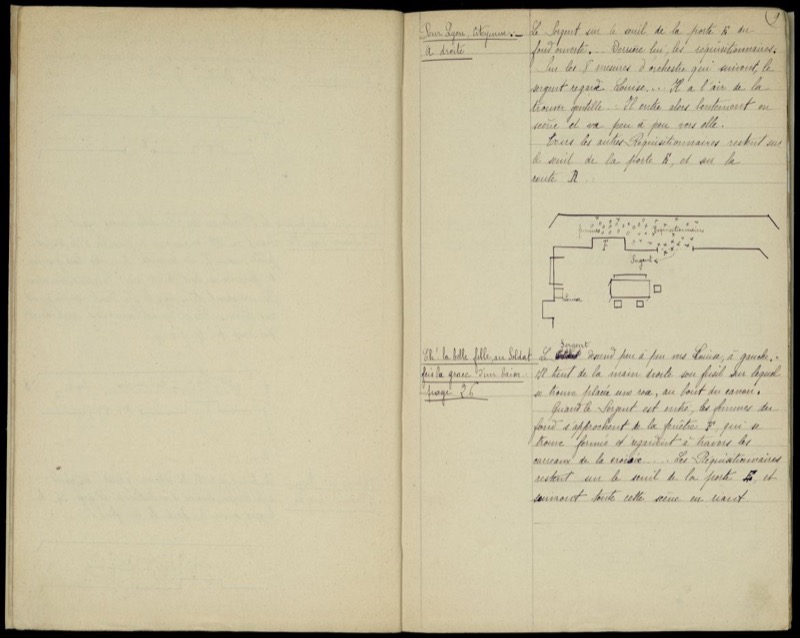 9
Pour Lyon, Citoyenne. —
à droite
Le Sergent sur le seuil de la porte E du
fond ouverte... Derrière lui, les réquisitionnaires.
Sur les 8 mesures d'orchestre qui suivent, le
sergent regarde Louise... Il a l'air de la
trouver gentille — Il entre alors lentement en
scène et va peu à peu vers elle.
Tous les autres Réquisitionnaires restent sur
le seuil de la porte E, et sur la
route A
femmes
Réquisitionnaires
F
Sergent
Louise
Eh! la belle fille, au Soldat
fais la grâce d'un baiser
page 26
Sergent
Le descend peu à peu vers Louise, à gauche. —
Il tient de la main droite son fusil sur lequel
se trouve placée une rose, au bout du canon.
Quand le Sergent est entré, les femmes du
fond s'approchent de la fenêtre F, qui se
trouve fermée et regardent à travers les
carreaux de la croisée .... Les Réquisitionnaires
restent sur le seuil de la porte E, et
suivront toute cette scène en riant